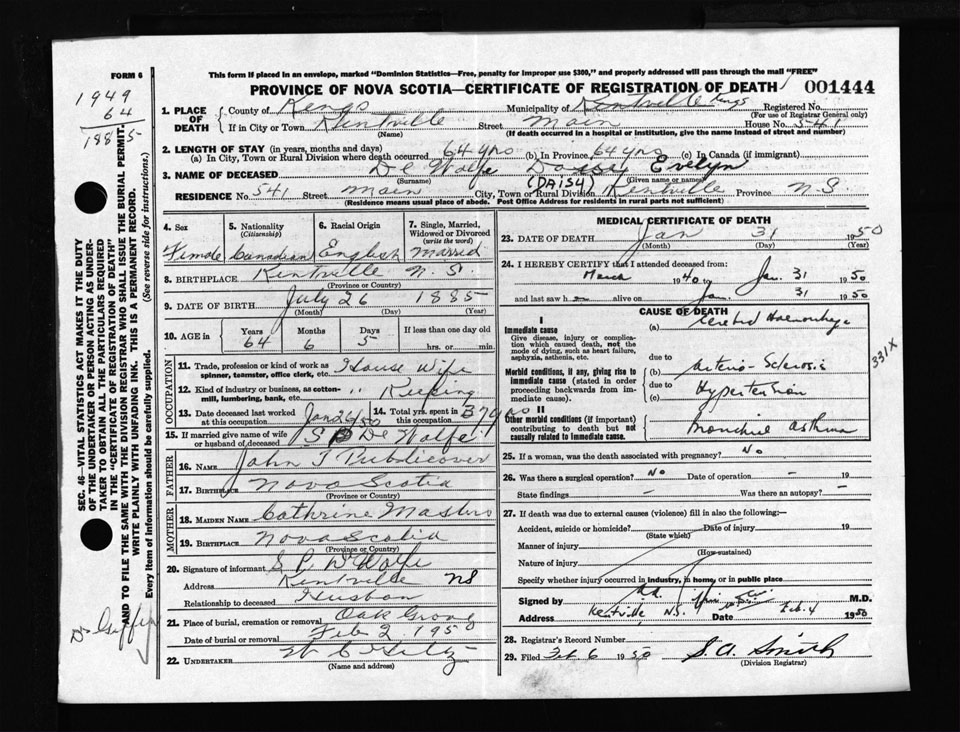 FORM 6
This form if placed in an envelope, marked "Dominion Statistics—Free, penalty for improper use $300," and properly addressed will pass through the mail "FREE"
PROVINCE OF NOVA SCOTIA—CERTIFICATE OF REGISTRATION OF DEATH 001444
1949
64
1885
1. PLACE OF DEATH County of Kings Municipality of Kentville Kings Registered No.
(For use of Registrar General only)
If in City or Town Kentville Street Main House No. 541
(Name) (If death occurred in a hospital or institution, give the name instead of street and number)
2. LENGTH OF STAY (in years, months and days)
(a) In City, Town or Rural Division where death occurred 64 yrs (b) In Province 64 yrs (c) In Canada (if immigrant)
3. NAME OF DECEASED De Wolfe Daisy Evelyn
(Surname) (DAISY) (Given name or names)
RESIDENCE No. 541 Street Main City, Town or Rural Division Kentville Province N.S.
(Residence means usual place of abode. Post Office Address for residents in rural parts not sufficient)
SEC. 46—VITAL STATISTICS ACT MAKES IT THE DUTY
OF THE UNDERTAKER OR PERSON ACTING AS UNDER-
TAKER TO OBTAIN ALL THE PARTICULARS REQUIRED
IN THE "CERTIFICATE OF REGISTRATION OF DEATH"
AND TO FILE THE SAME WITH THE DIVISION REGISTRAR WHO SHALL ISSUE THE BURIAL PERMIT.
WRITE PLAINLY WITH UNFADING INK. THIS IS A PERMANENT RECORD.
Every item of information should be carefully supplied. (See reverse side for instructions.)
4. Sex 5. Nationality (Citizenship) 6. Racial Origin 7. Single, Married, Widowed or Divorced (write the word)
Female Canadian English Married
8. BIRTHPLACE Kentville N.S.
(Province or Country)
9. DATE OF BIRTH July 26 1885
(Month) (Day) (Year)
10. AGE in Years Months Days If less than one day old
64 6 5 hrs. or min.
OCCUPATION
11. Trade, profession or kind of work as spinner, teamster, office clerk, etc. House Wife
12. Kind of industry or business, as cotton-mill, lumbering, bank, etc. " Keeping
13. Date deceased last worked at this occupation Jan 26/50 14. Total yrs. spent in 37 yrs
15. If married give name of wife or husband of deceased S P De Wolfe
FATHER
16. NAME John T Publicover
17. BIRTHPLACE Nova Scotia
(Province or Country)
MOTHER
18. MAIDEN NAME Cathrine Masters
19. BIRTHPLACE Nova Scotia
(Province or Country)
20. Signature of informant S P De Wolfe
Address Kentville NS
Relationship to deceased Husban
21. Place of burial, cremation or removal Oak Grove
Date of burial or removal Feb 2 1950
22. UNDERTAKER
(Name and address)
MEDICAL CERTIFICATE OF DEATH
23. DATE OF DEATH Jan 31 1950
(Month) (Day) (Year)
24. I HEREBY CERTIFY that I attended deceased from:
March 1940 to Jan. 31 1950
and last saw h er alive on Jan. 31 1950
CAUSE OF DEATH
I
Immediate cause
Give disease, injury or complication which caused death, not the mode of dying, such as heart failure, asphyxia, asthenia, etc.
(a) Cerebral Haemorrhage
due to
Morbid conditions, if any, giving rise to immediate cause (stated in order proceeding backwards from immediate cause).
(b) Arterio-Sclerosis
due to
(c) Hypertension
331X
II
Other morbid conditions (if important) contributing to death but not causally related to immediate cause.
Bronchial Asthma
25. If a woman, was the death associated with pregnancy? No
26. Was there a surgical operation? No Date of operation – 19
State findings – Was there an autopsy? –
27. If death was due to external causes (violence) fill in also the following:—
Accident, suicide or homicide? Date of injury 19
(State which)
Manner of injury
(How sustained)
Nature of injury
Specify whether injury occurred in industry, in home, or in public place
Signed by M.D.
Address Kentville, N.S. Date Feb. 4 1950
28. Registrar's Record Number
29. Filed Feb 6 1950 S. A. Smith
(Division Registrar)